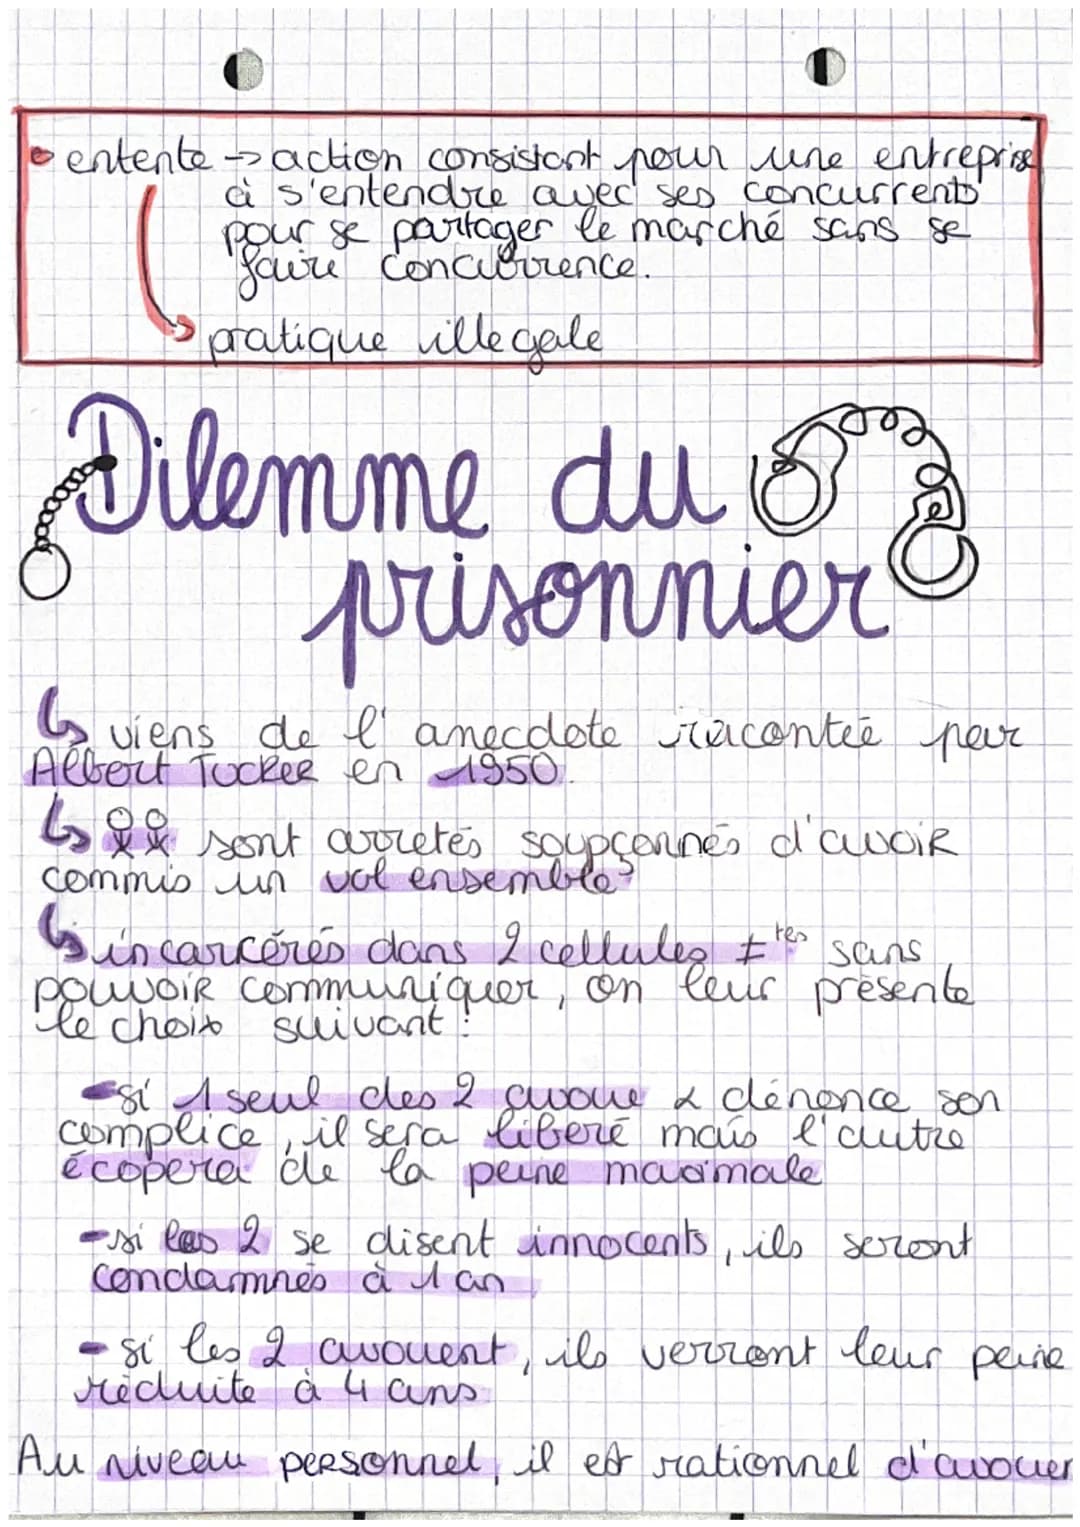 entente → action consistant pour une entreprise
à s'entendre avec ses concurrents
pour se partager le marché sans se
faire concurrence.
pratique illegale
Dilemme du
prisonnier
viens de l'anecdote racontée par
Albert Tucker en 1950.
sont arretés soupçonnés d'avoir
commis un vol ensemble
incarcérés dans 2 cellules ≠tes sans
pouvoir communiquer, on leur présente
le choix suivant :
- si 1 seul des 2 avoue & dénonce son
complice, il sera libéré mais l'autre
écopera de la peine maximale
- si les 2 se disent innocents, ils seront
condamnés à 1 an
- si les 2 avouent, ils verront leur peine
réduite à 4 ans
Au niveau personnel, il est rationnel d'avouer